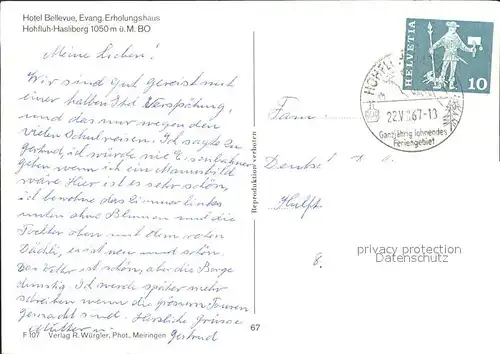 Hotel Bellevue, Evang. Erholungshaus
Hohfluh-Hasliberg 1050 m ü. M. BO
Meine Lieben!
Wir sind gut gereist mit
einer halben Std Verspätung,
und das nur wegen den
vielen Schulreisen. Ich sagte zu
Gertrud, ich würde nie Eisenbahner
geben wenn ich ein Mannsbild
wäre Hier ist es sehr schön,
ich bewohne das Zimmer links
unden ohne Blumen und die
Tochter oben mit dem roten
Dächli, es ist neu und schön.
Das Wetter ist schön, aber die Berge
dunstig. Ich werde später mehr
schreiben wenn die grössern Touren
gemacht sind. Herzliche Grüsse
Mutter Gertrud
F 107 Verlag R. Würgler, Phot. Meiringen
67
Reproduktion verboten
HELVETIA
10
HOHFL
22.V 67-13
Ganzjährig lohnendes
Feriengebiet
Fam.
8.
privacy protection
Datenschutz